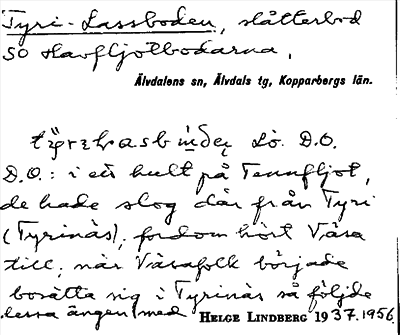 Tyri-Lassboden, slåtterbod
SO Havfljotbodarna,
Älvdalens sn, Älvdals tg, Kopparbergs län.
Lo. D.O.
D.O.: i ett hult på Tennfljot,
de hade slog där från Tyri
(Tyrinäs), fordom hört Våsa
till, när Våsafolk började
bosätta sig i Tyrinäs så följde
dessa ängen med HELGE LINDBERG 1937.1956